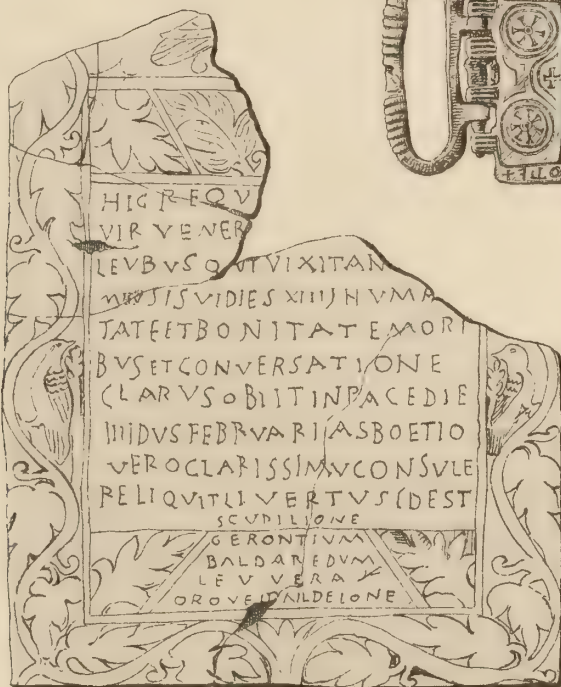 HIC REQV
VIR VENER
LEVBVS QVI VIXIT AN
DIES XIIII HVMA
TATE ET BONITATE MORI
BVS ET CONVERSATIONE
CLARVS OBIIT IN PACE DIE
IIIIDVS FEBRVARIAS BOETIO
VERO CLARISSIMV CONSVLE
RELIQVIT LIVERTVS IDEST
SCVPILIONE
GERONTIVM
BALDAREDVM
LEVVERA
ILDELONE